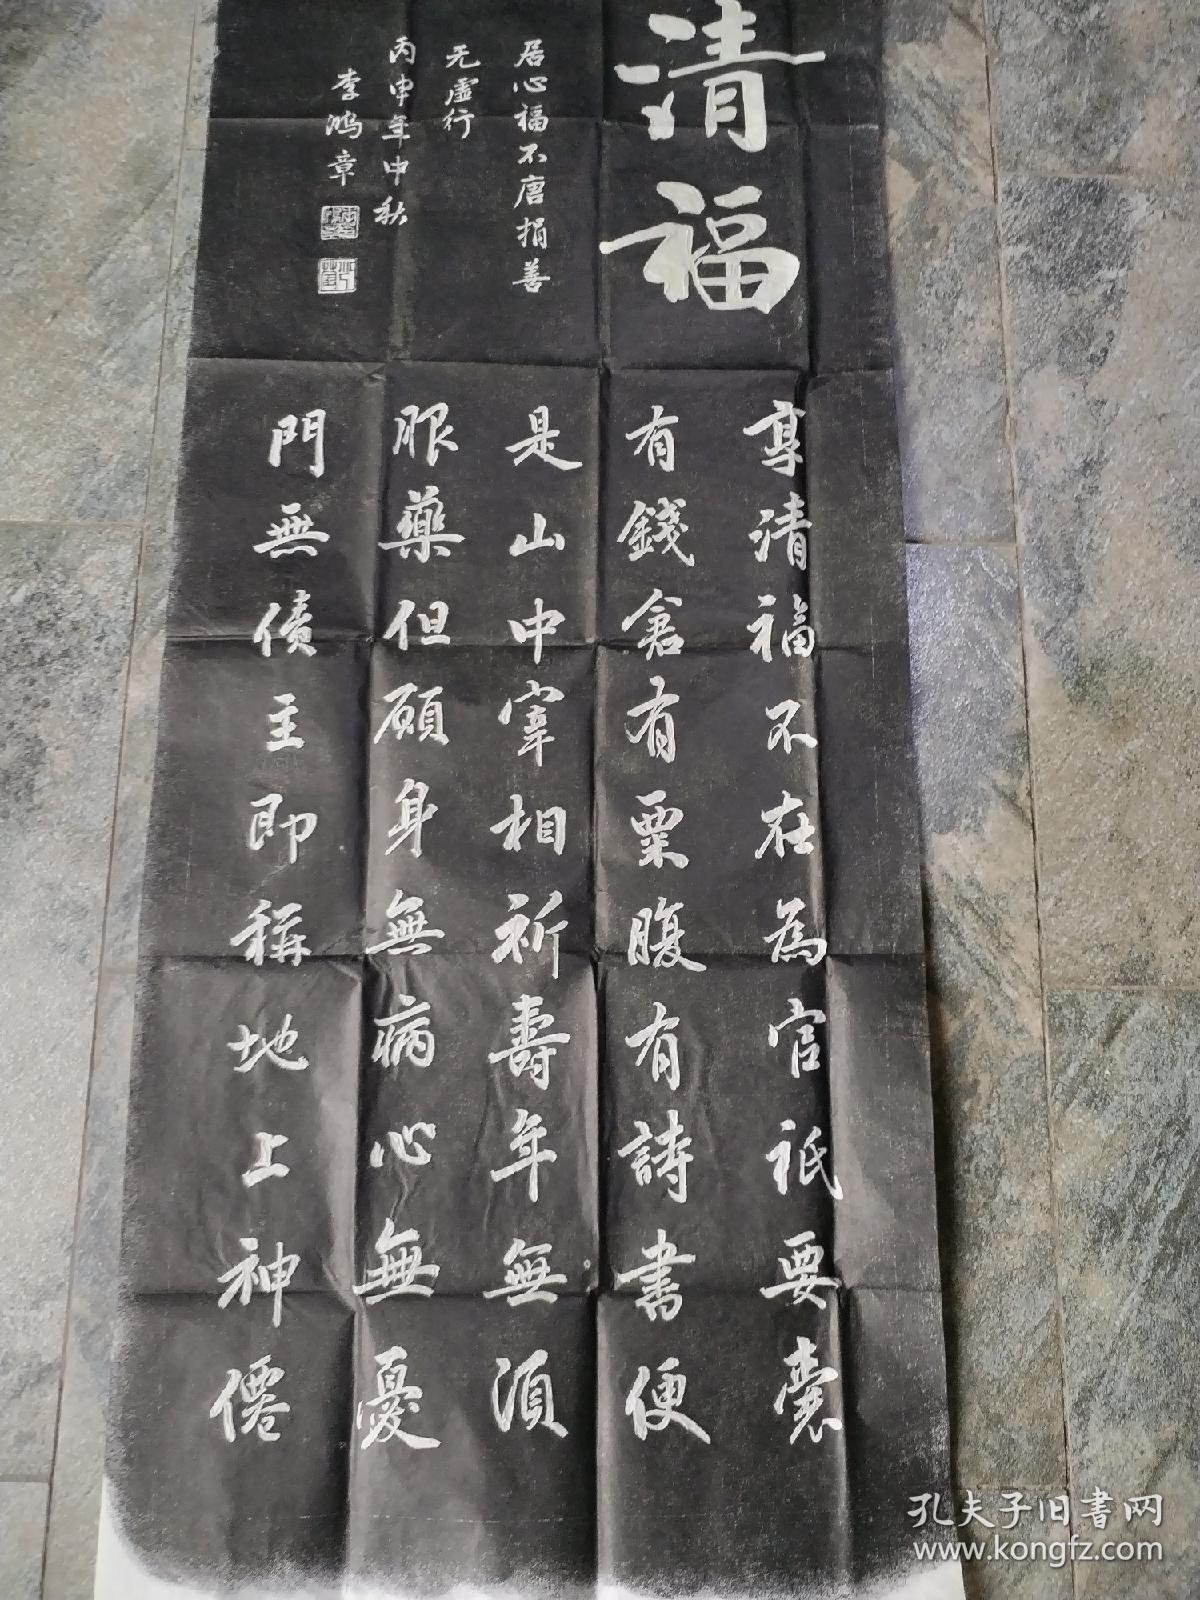 清福
居心福不唐捐善
无虚行
丙申年中秋
李鸿章
享清福不在為官祇要囊
有錢倉有粟腹有詩書便
是山中宰相祈壽年無須
服藥但願身無病心無憂
門無債主即稱地上神僊
孔夫子旧书网
www.kongfz.com